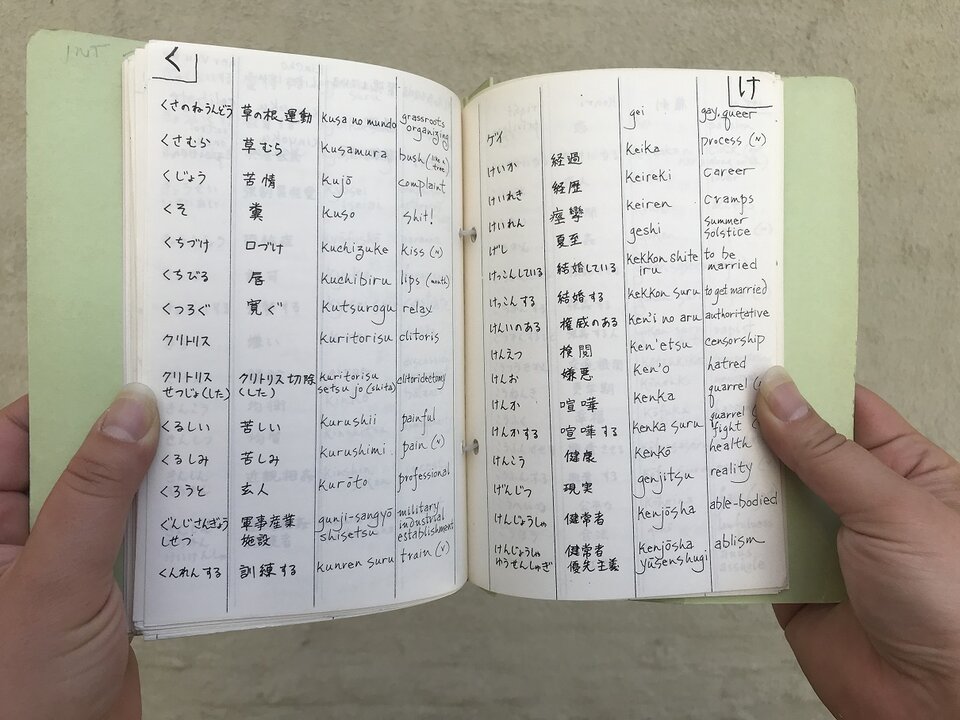 INT
く
くさのねうんどう 草の根運動 kusa no mundo grassroots organizing
くさむら 草むら kusamura bush (like a tree)
くじょう 苦情 kujō complaint
くそ 糞 kuso shit!
くちづけ 口づけ kuchizuke kiss (N)
くちびる 唇 kuchibiru lips (mouth)
くつろぐ 寛ぐ kutsurogu relax
クリトリス kuritorisu clitoris
クリトリス クリトリス切除 kuritorisu clitoridectomy
せつじょ(した) (した) setsujo (shita)
くるしい 苦しい kurushii painful
くるしみ 苦しみ kurushimi pain (N)
くろうと 玄人 kurōto professional
ぐんじさんぎょう 軍事産業 gunji-sangyō military industrial
しせつ 施設 shisetsu establishment
くんれんする 訓練する kunren suru train (V)
け
ゲイ gei gay, queer
けいか 経過 keika process (N)
けいれき 経歴 keireki career
けいれん 痙攣 keiren cramps
げし 夏至 geshi summer solstice
けっこんしている 結婚している kekkon shite iru to be married
けっこんする 結婚する kekkon suru to get married
けんいのある 権威のある ken'i no aru authoritative
けんえつ 検閲 ken'etsu censorship
けんお 嫌悪 ken'o hatred
けんか 喧嘩 kenka quarrel
けんかする 喧嘩する kenka suru quarrel fight
けんこう 健康 kenkō health
げんじつ 現実 genjitsu reality
けんじょうしゃ 健常者 kenjōsha able-bodied
けんじょうしゃ 健常者 kenjōsha ablism
ゆうせんしゅぎ 優先主義 yūsenshugi